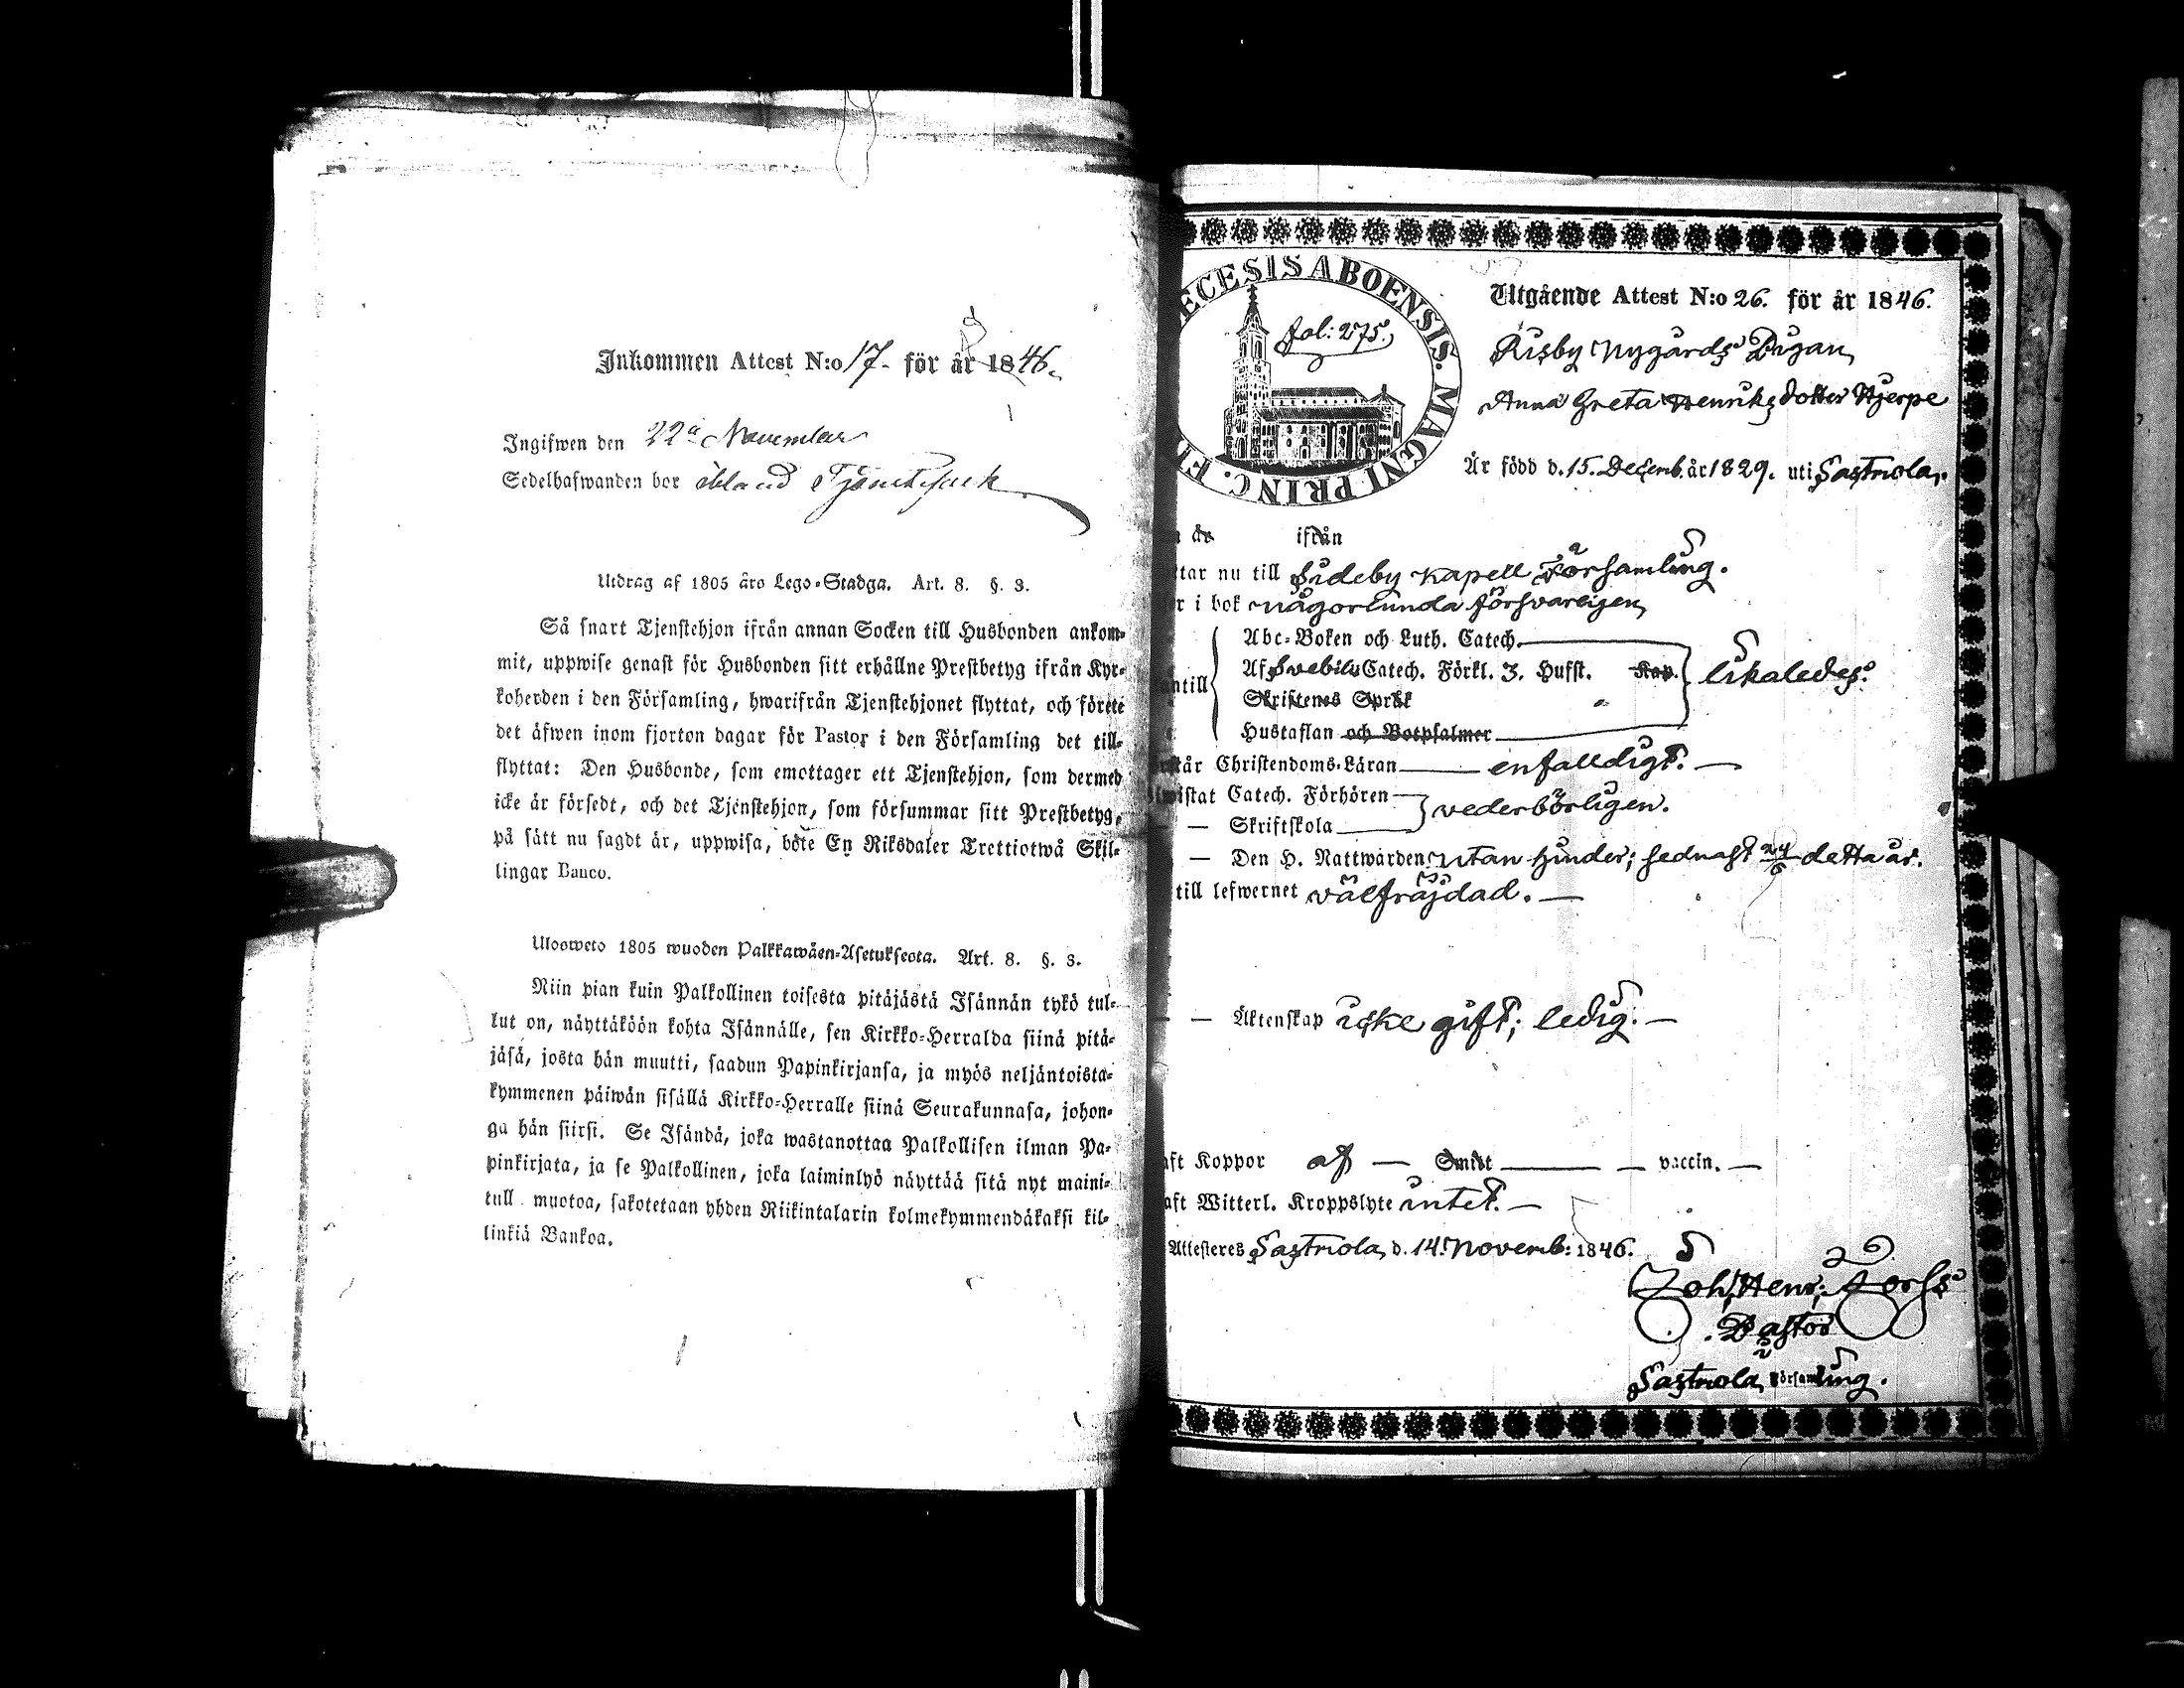 Inkommen Attest N:o 17. för år 1846.
Ingifwen den 22a November
Sedelhafwanden bor ibland Tjenstefolk
Utdrag af 1805 års Lego-Stadga. Art. 8. §. 3.
Så snart Tjenstehjon ifrån annan Socken till Husbonden ankom-
mit, uppwise genast för Husbonden sitt erhållne Prestbetyg ifrån Kyr-
koherden i den Församling, hwarifrån Tjenstehjonet flyttat, och förete
det äfwen inom fjorton dagar för Pastor i den Församling det till-
flyttat: Den Husbonde, som emottager ett Tjenstehjon, som dermed
icke är försedt, och det Tjenstehjon, som försummar sitt Prestbetyg,
på sätt nu sagdt är, uppwisa, böte En Riksdaler Trettiotwå Skil-
lingar Banco.
Ulosweto 1805 wuoden Palkkawäen-Asetuksesta. Art. 8. §. 3.
Niin pian kuin Palkollinen toisesta pitäjästä Isännän tykö tul-
lut on, näyttäköön kohta Isännälle, sen Kirkko-Herralda siinä pitä-
jäsä, josta hän muutti, saadun Papinkirjansa, ja myös neljäntoista-
kymmenen päiwän sisällä Kirkko-Herralle siinä Seurakunnasa, johon-
ga hän siirsi. Se Isändä, joka wastanottaa Palkollisen ilman Pa-
pinkirjata, ja se Palkollinen, joka laiminlyö näyttää sitä nyt maini-
tull muotoa, sakotetaan yhden Riikintalarin kolmekymmendäkaksi kil-
linkiä Bankoa.
ECESIS ABOENSIS. MAGNI PRINC. FI
fol: 275.
Utgående Attest N:o 26. för år 1846.
Risby Nygårds Pigan
Anna Greta Henriksdotter Hjerpe
Är född d. 15. Decemb. år 1829. uti Sastmola.
är ifrån
tar nu till Sideby Kapell Församling.
r i bok någorlunda försvarligen,
Abc-Boken och Luth. Catech.
Af Svebilii Catech. Förkl. 3. Hufst. Kap.
ntill likaledes.
Skriftenes Språk
Hustaflan och Botpsalmer
står Christendoms-Läran enfalldigt.
wistat Catech. Förhören
— Skriftskola vederbörligen.
— Den H. Nattwarden utan hinder; sednast 24/5 detta år.
till lefwernet välfräjdad.
— Äktenskap icke gift; ledig.
aft Koppor af — Smitt — vaccin. —
aft Witterl. Kroppslyte intet.
Attesteres Sastmola, d. 14. Novemb: 1846.
Joh. Henr: Forss
Pastor
Sastmola Församling.